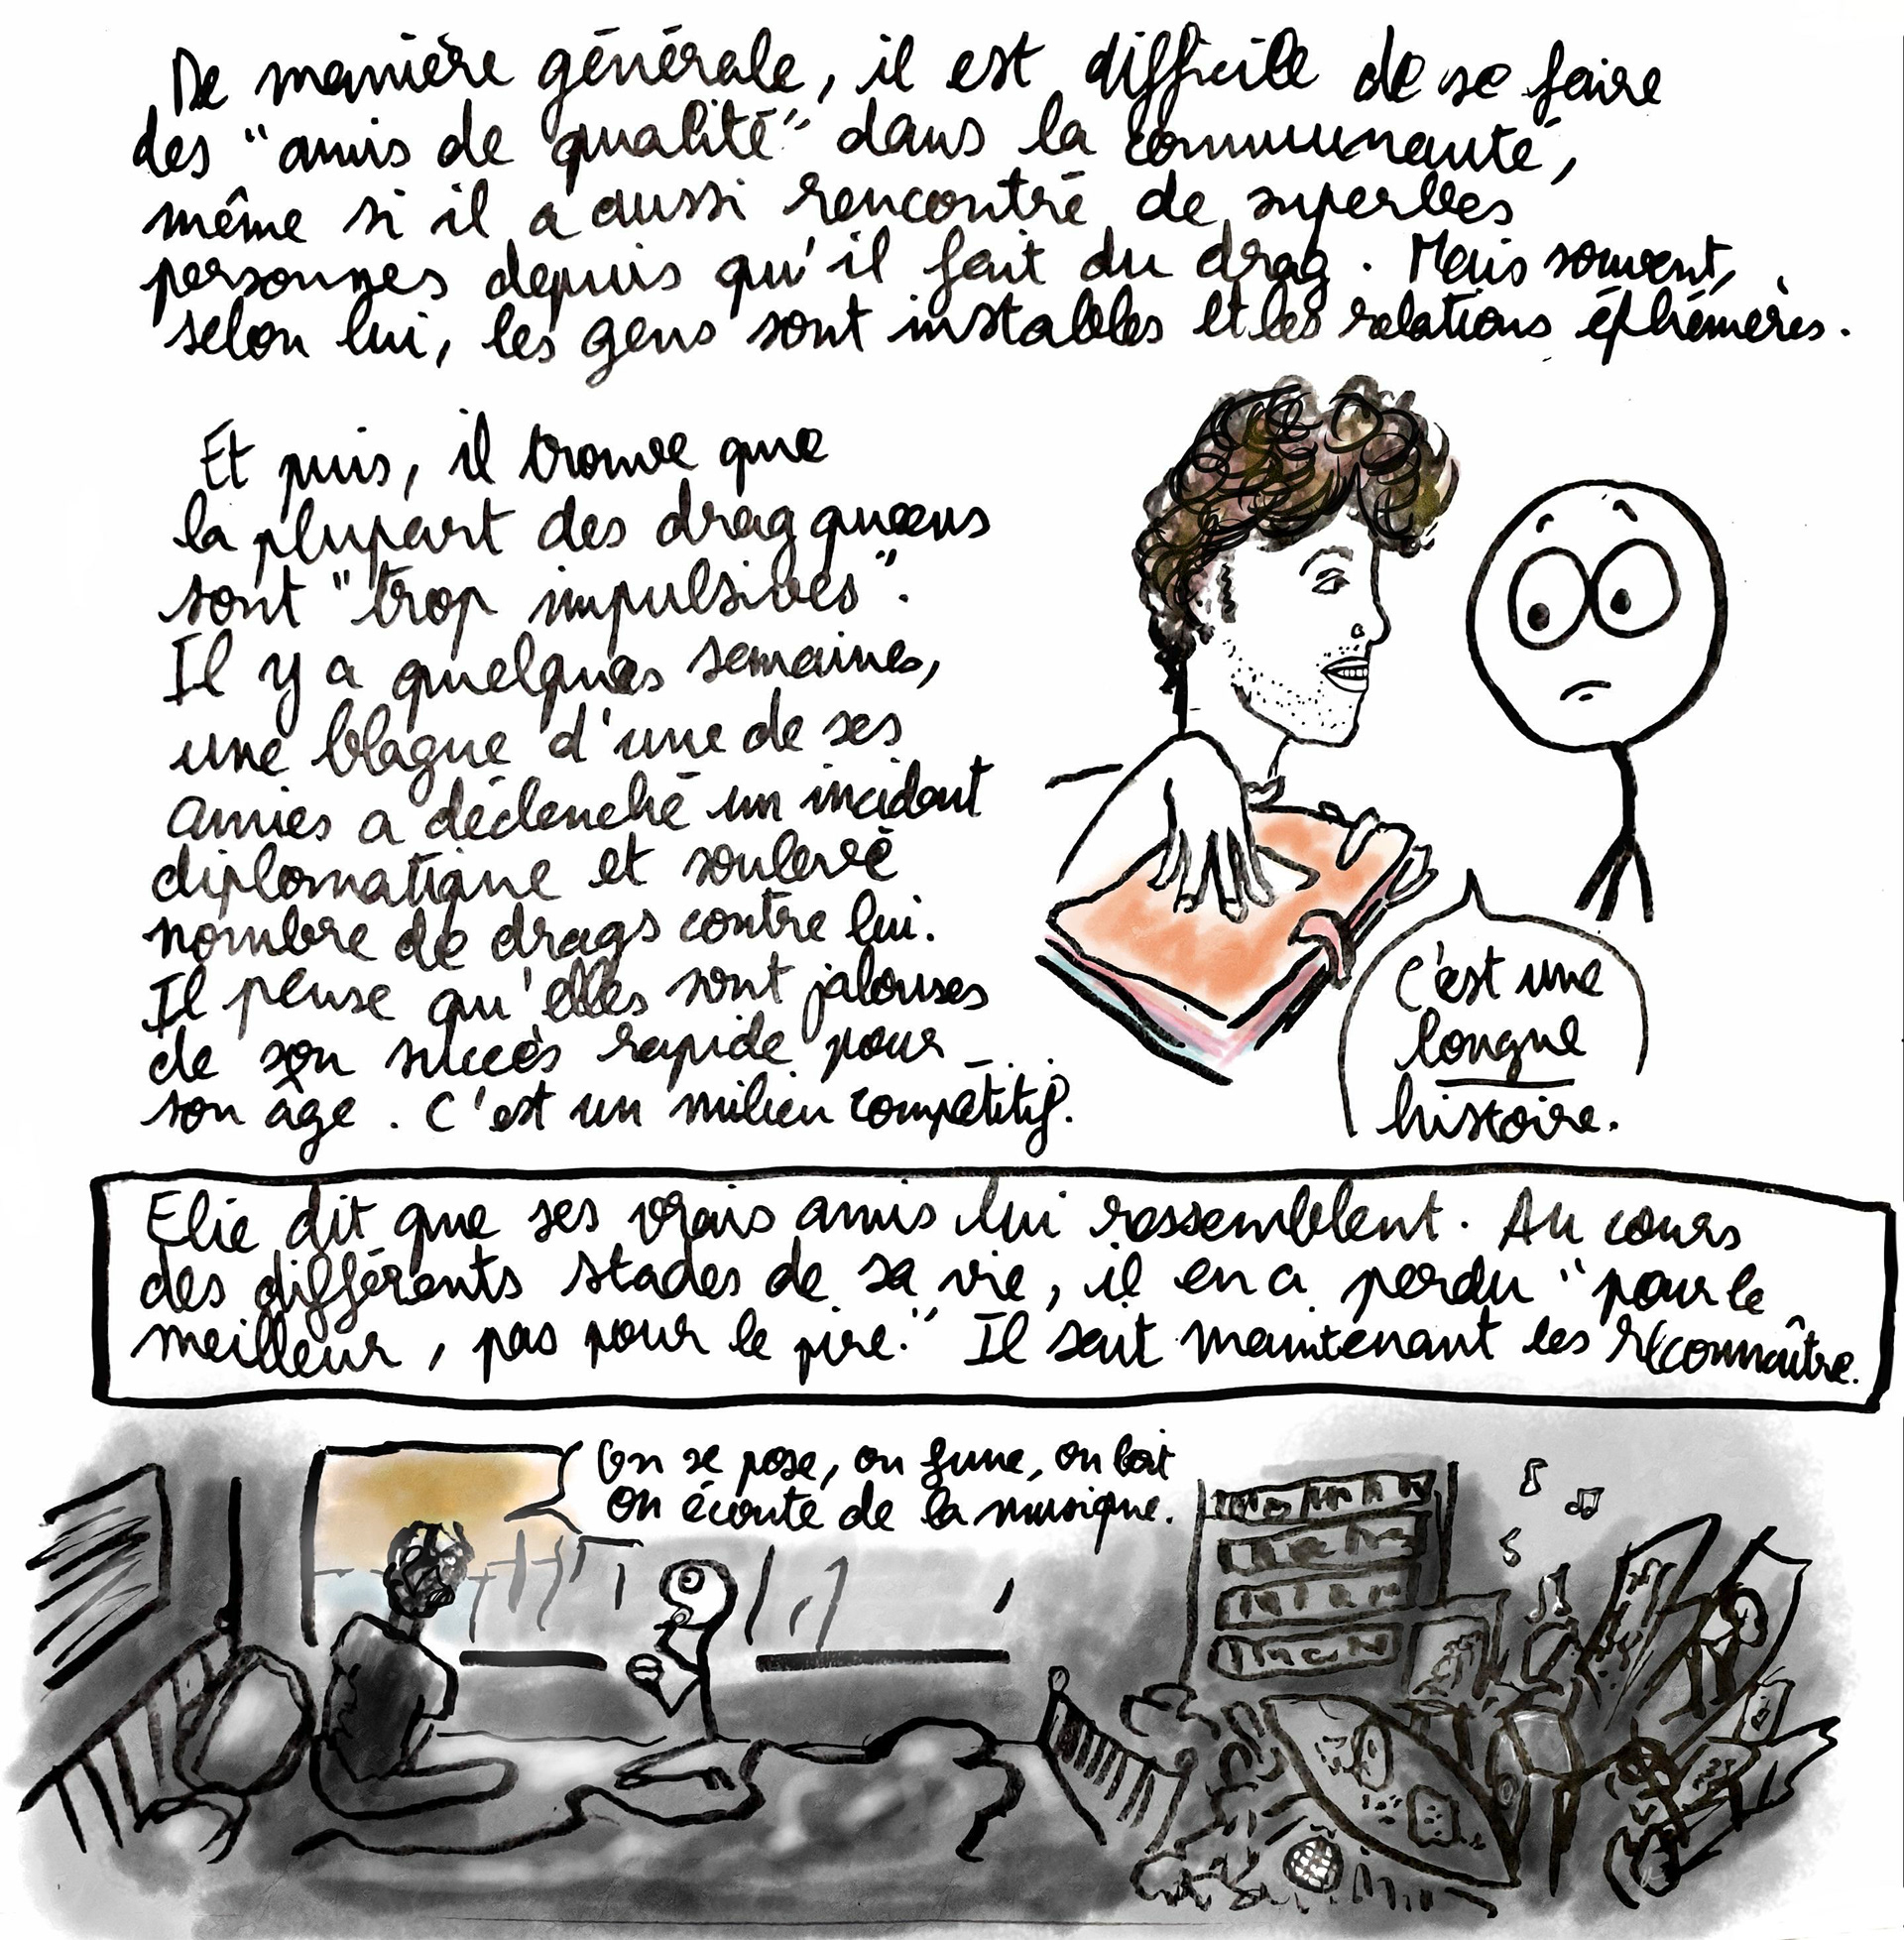 De manière générale, il est difficile de se faire
des "amis de qualité" dans la communauté,
même si il a aussi rencontré de superbes
personnes depuis qu'il fait du drag. Mais souvent,
selon lui, les gens sont instables et les relations éphémères.
Et puis, il trouve que
la plupart des drag queens
sont "trop impulsives".
Il y a quelques semaines,
une blague d'une de ses
amies a déclenché un incident
diplomatique et soulevé
nombre de drags contre lui.
Il pense qu'elles sont jalouses
de son succès rapide pour
son âge. C'est un milieu compétitif.
C'est une
longue
histoire.
Elie dit que ses vrais amis lui ressemblent. Au cours
des différents stades de sa vie, il en a perdu "pour le
meilleur, pas pour le pire." Il sait maintenant les reconnaître.
On se pose, on fume, on boit
on écoute de la musique.